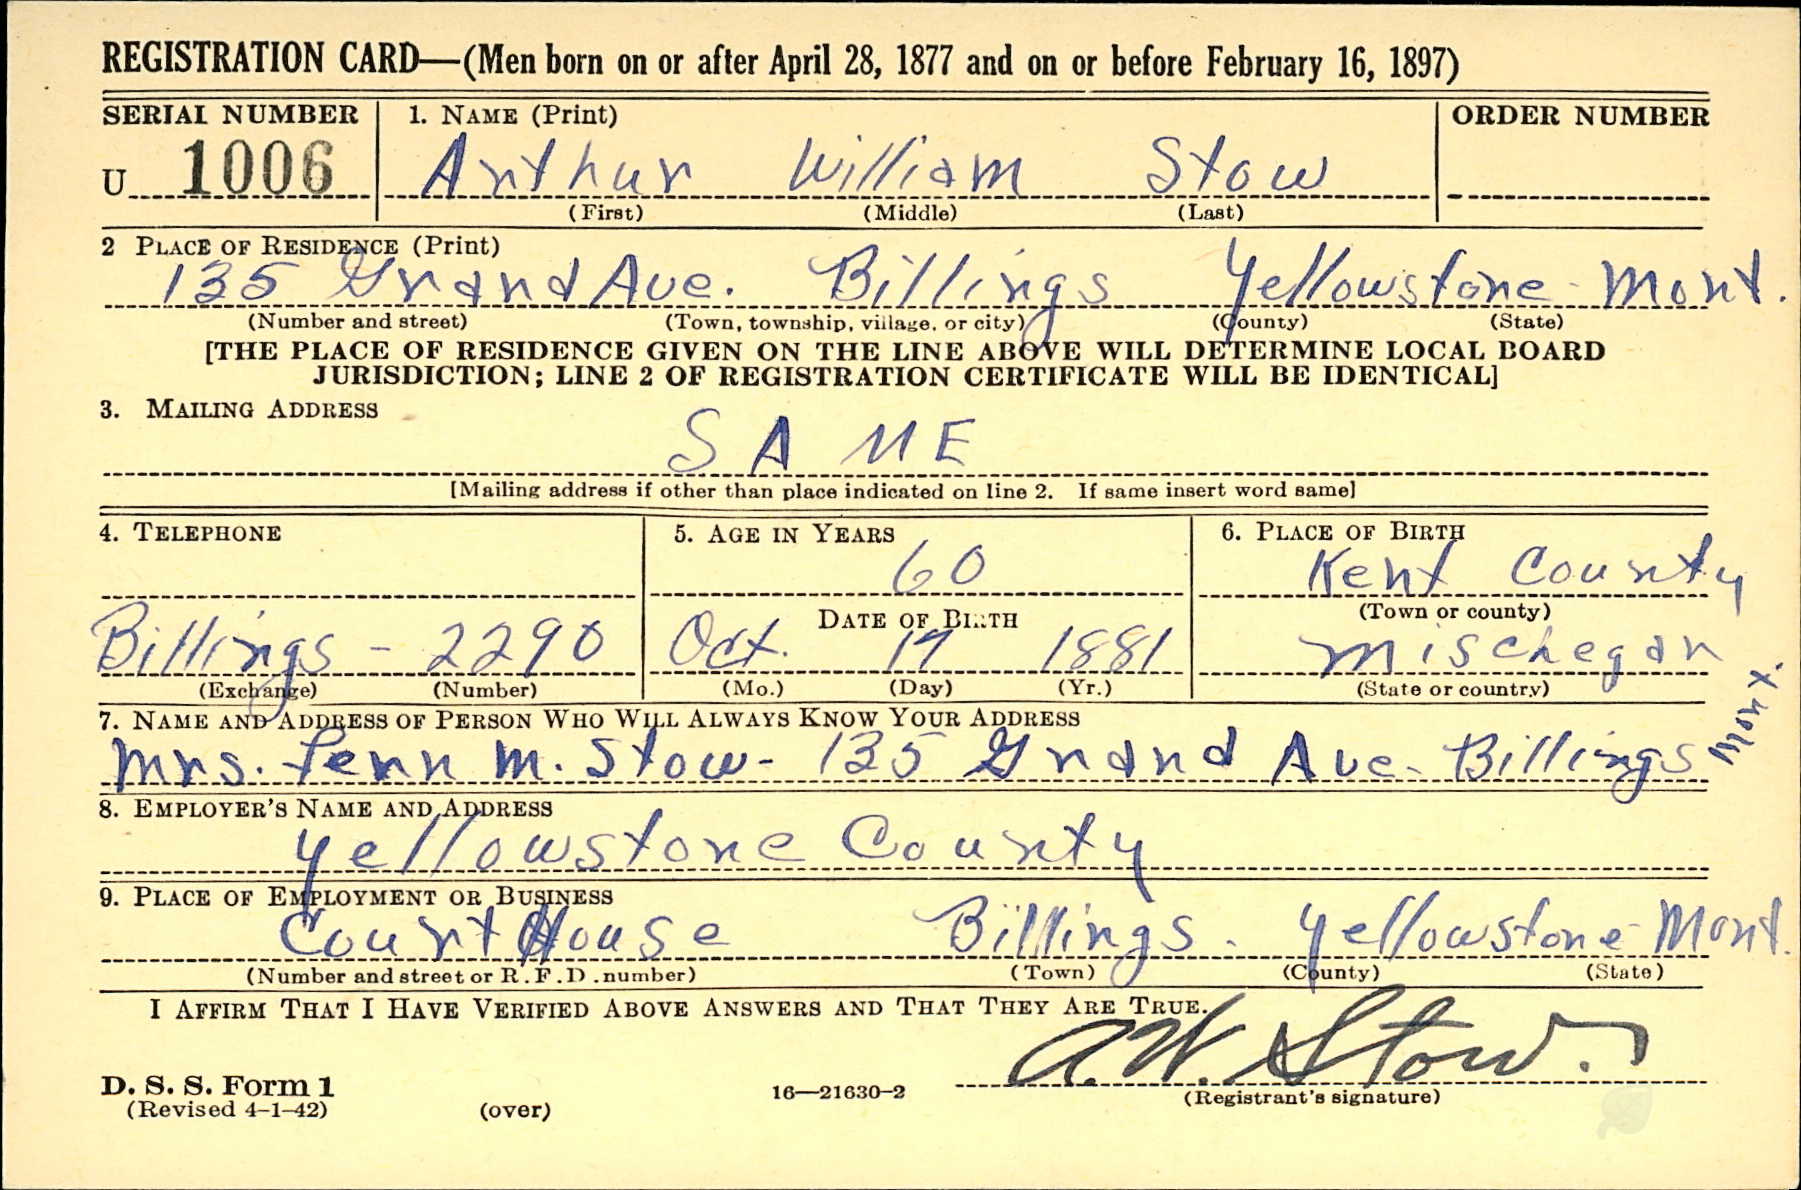 REGISTRATION CARD—(Men born on or after April 28, 1877 and on or before February 16, 1897)
SERIAL NUMBER 1. NAME (Print) ORDER NUMBER
U 1006 Arthur William Stow
(First) (Middle) (Last)
2 PLACE OF RESIDENCE (Print)
135 Grand Ave. Billings Yellowstone Mont.
(Number and street) (Town, township, village, or city) (County) (State)
[THE PLACE OF RESIDENCE GIVEN ON THE LINE ABOVE WILL DETERMINE LOCAL BOARD
JURISDICTION; LINE 2 OF REGISTRATION CERTIFICATE WILL BE IDENTICAL]
3. MAILING ADDRESS
SAME
[Mailing address if other than place indicated on line 2. If same insert word same]
4. TELEPHONE 5. AGE IN YEARS 6. PLACE OF BIRTH
60 Kent County
DATE OF BIRTH (Town or county)
Billings - 2290 Oct. 19 1881 Mischegan
(Exchange) (Number) (Mo.) (Day) (Yr.) (State or country)
7. NAME AND ADDRESS OF PERSON WHO WILL ALWAYS KNOW YOUR ADDRESS
Mrs. Fern M. Stow - 135 Grand Ave. Billings Mont.
8. EMPLOYER'S NAME AND ADDRESS
Yellowstone County
9. PLACE OF EMPLOYMENT OR BUSINESS
Court House Billings. Yellowstone Mont.
(Number and street or R.F.D. number) (Town) (County) (State)
I AFFIRM THAT I HAVE VERIFIED ABOVE ANSWERS AND THAT THEY ARE TRUE.
A.W. Stow.
D. S. S. Form 1
(Revised 4-1-42) (over) 16—21630-2 (Registrant's signature)